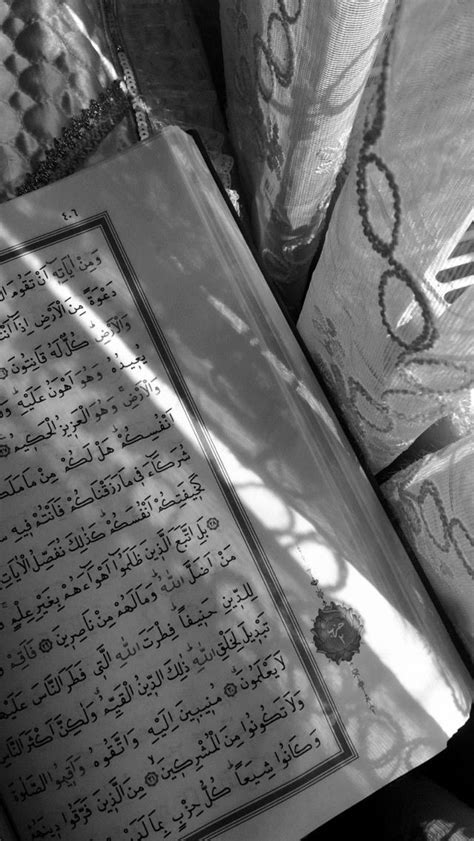 ٤٠٦
وَمِنْ اٰيَاتِهِ اَنْ تَقُومَ
دَعْوَةً مِنَ الْاَرْضِ اِذَا
وَالْاَرْضِ كُلٌّ لَهُ قَانِتُونَ
يُعِيدُهُ وَهُوَ اَهْوَنُ عَلَيْهِ
وَالْاَرْضِ وَهُوَ الْعَزِيزُ الْحَكِيمُ
اَنْفُسِكُمْ هَلْ لَكُمْ مِنْ مَا
شُرَكَاءَ فِي مَا رَزَقْنَاكُمْ فَاَنْتُمْ فِيهِ
كَخِيفَتِكُمْ اَنْفُسَكُمْ كَذٰلِكَ نُفَصِّلُ الْاٰيَاتِ
﴿٢٨﴾ بَلِ اتَّبَعَ الَّذِينَ ظَلَمُوا اَهْوَاءَهُمْ بِغَيْرِ عِلْمٍ
مَنْ اَضَلَّ اللّٰهُ وَمَا لَهُمْ مِنْ نَاصِرِينَ ﴿٢٩﴾ فَاَقِمْ
لِلدِّينِ حَنِيفًا فِطْرَتَ اللّٰهِ الَّتِي فَطَرَ النَّاسَ عَلَيْهَا
تَبْدِيلَ لِخَلْقِ اللّٰهِ ذٰلِكَ الدِّينُ الْقَيِّمُ وَلٰكِنَّ اَكْثَرَ النَّاسِ
لَا يَعْلَمُونَ ﴿٣٠﴾ مُنِيبِينَ اِلَيْهِ وَاتَّقُوهُ وَاَقِيمُوا الصَّلٰوةَ
وَلَا تَكُونُوا مِنَ الْمُشْرِكِينَ ﴿٣١﴾ مِنَ الَّذِينَ فَرَّقُوا دِينَهُمْ
وَكَانُوا شِيَعًا كُلُّ حِزْبٍ بِمَا
حزب